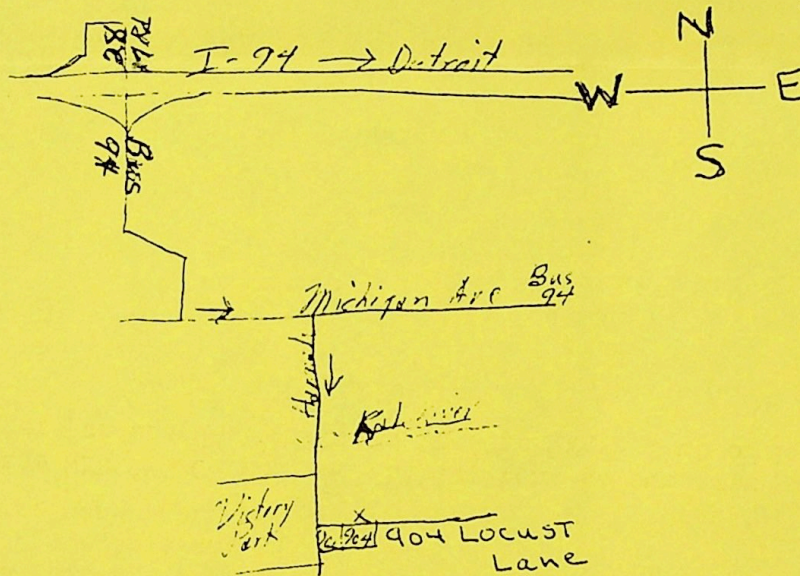 N
W E
S
I-94 → Detroit
Bus
94
Michigan Ave Bus
94
Victory
Park
904
904 LOCUST
Lane